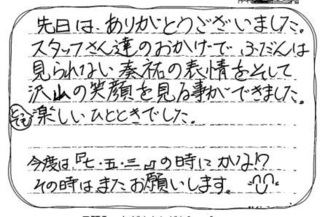 先日は、ありがとうございました。
スタッフさん達のおかげで、ふだんは
見られない奏祐の表情をそして
沢山の笑顔を見る事ができました。
楽しいひとときでした。
今度は『七・五・三』の時にかな!?
その時はまたお願いします。